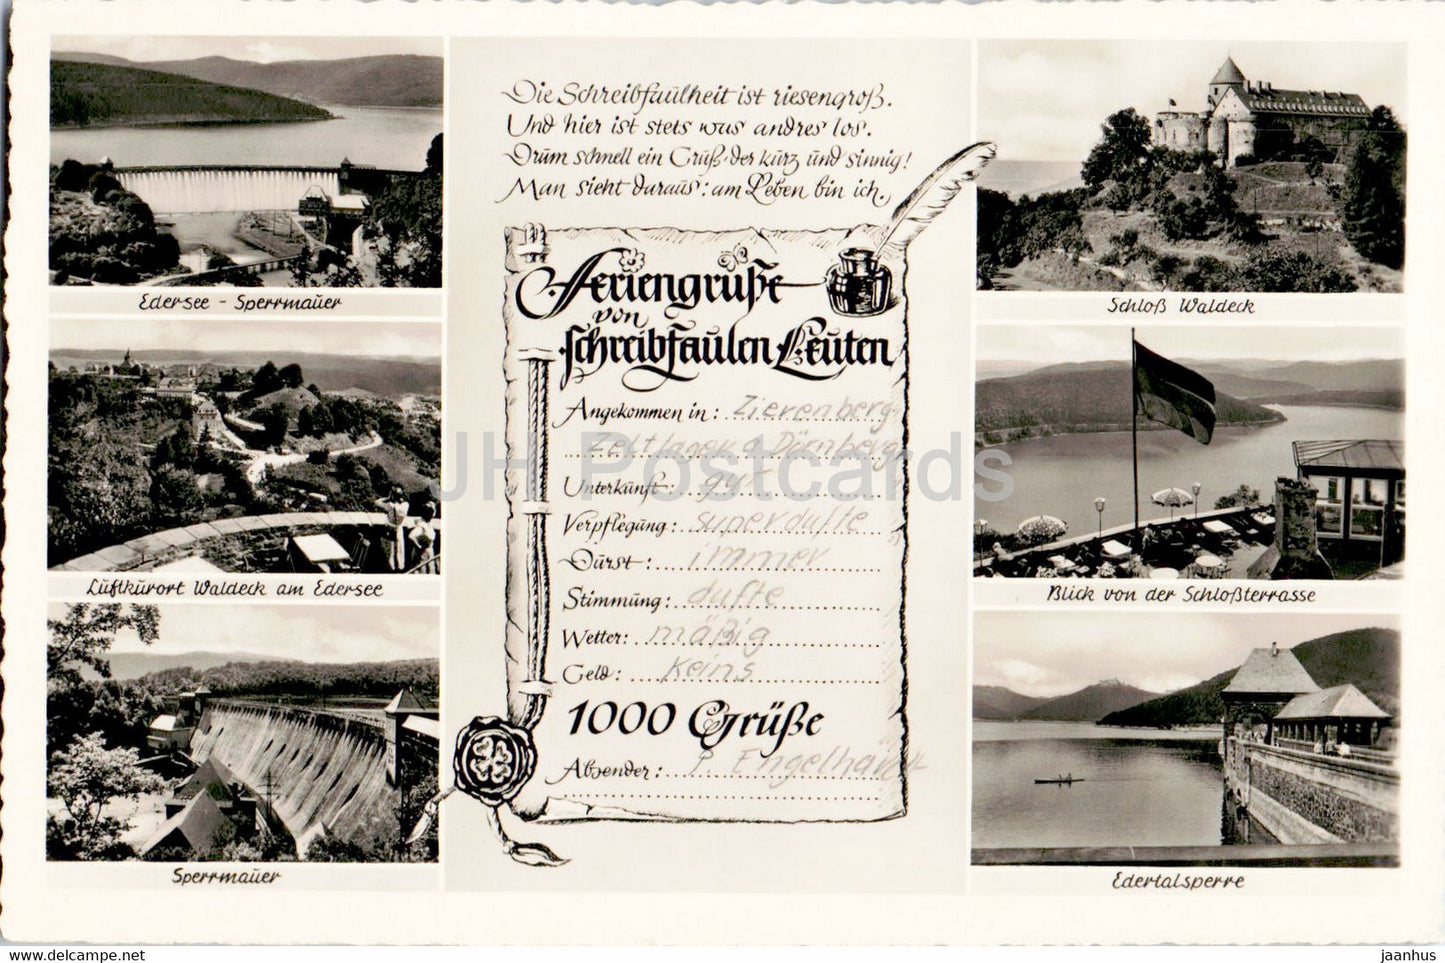 Die Schreibfaulheit ist riesengroß.
Und hier ist stets was andres los.
Drum schnell ein Gruß, der kurz und sinnig!
Man sieht daraus: am Leben bin ich.
Feriengrüße
von
schreibfaulen Leuten
Angekommen in: Zierenberg
Zeltlager a Dörnberg
Unterkunft: gut
Verpflegung: superdufte
Durst: immer
Stimmung: dufte
Wetter: mäßig
Geld: keins
1000 Grüße
Absender: P. Engelhardt
Edersee - Sperrmauer
Luftkurort Waldeck am Edersee
Sperrmauer
Schloß Waldeck
Blick von der Schloßterrasse
Edertalsperre
JH Postcards
www.delcampe.net
jaanhus